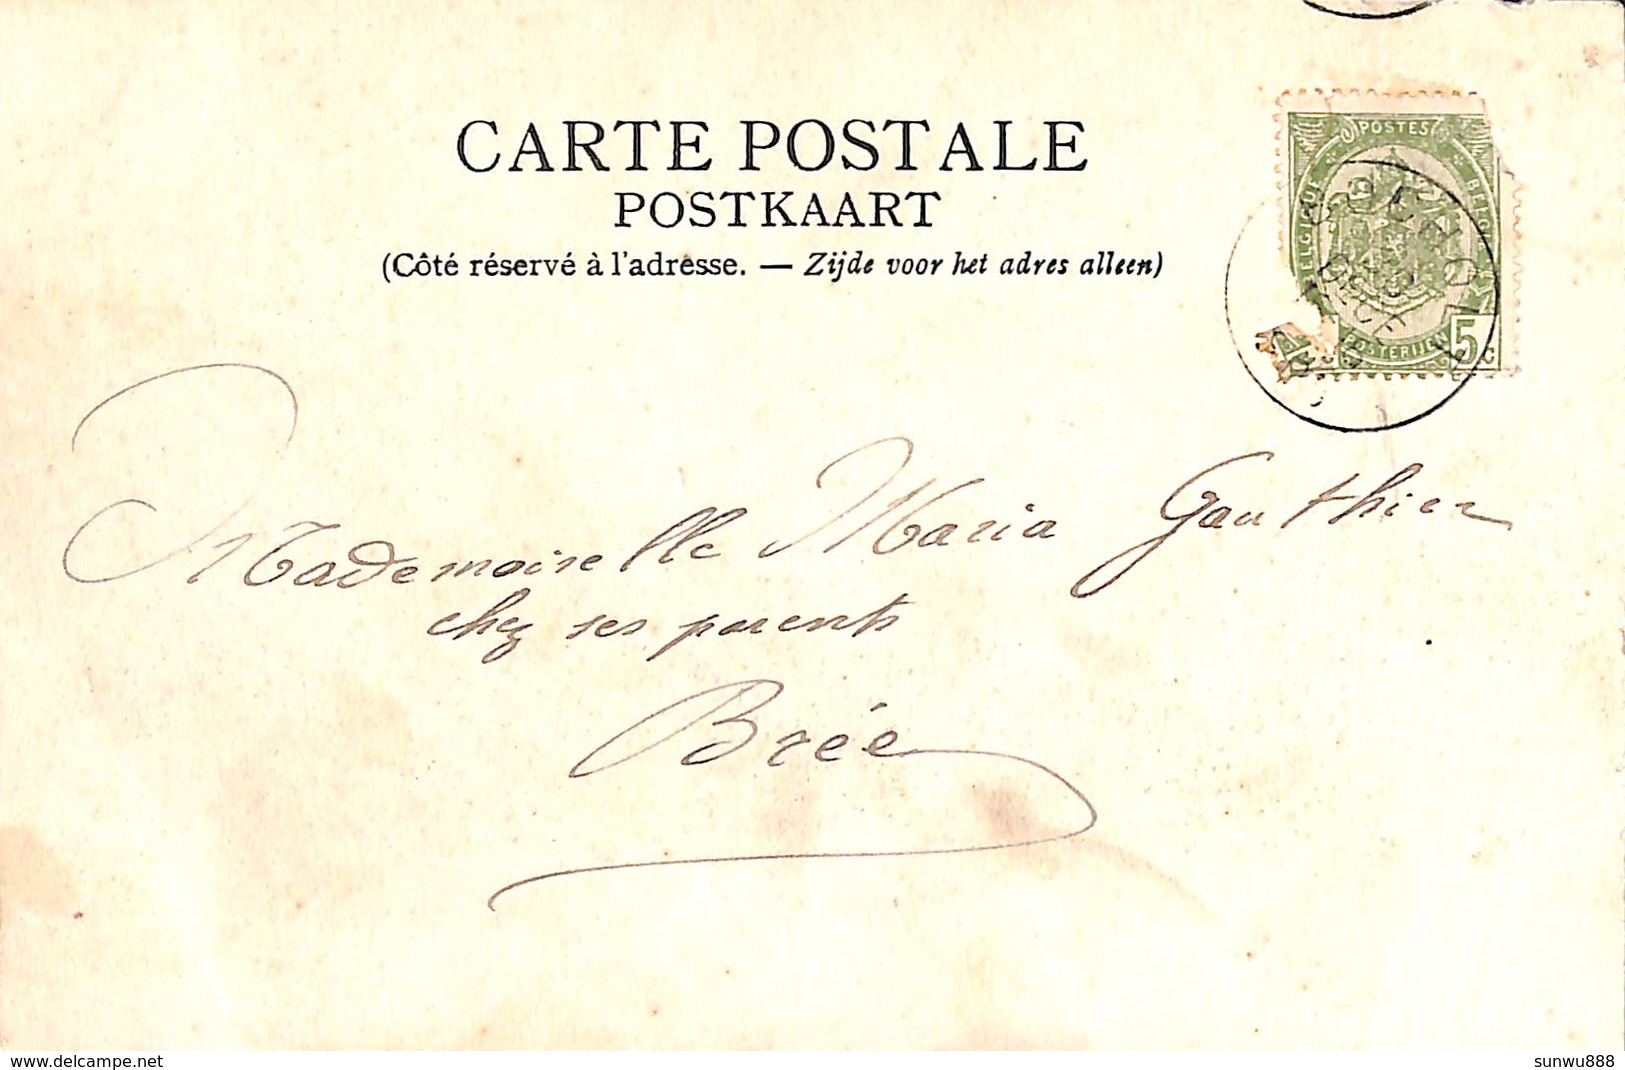 CARTE POSTALE
POSTKAART
(Côté réservé à l'adresse. — Zijde voor het adres alleen)
POSTES
BELGIQUE
BELGIË
POSTERIJEN
5 c
Mademoiselle Maria Gauthier
chez ses parents
Brée
www.delcampe.net
sunwu888